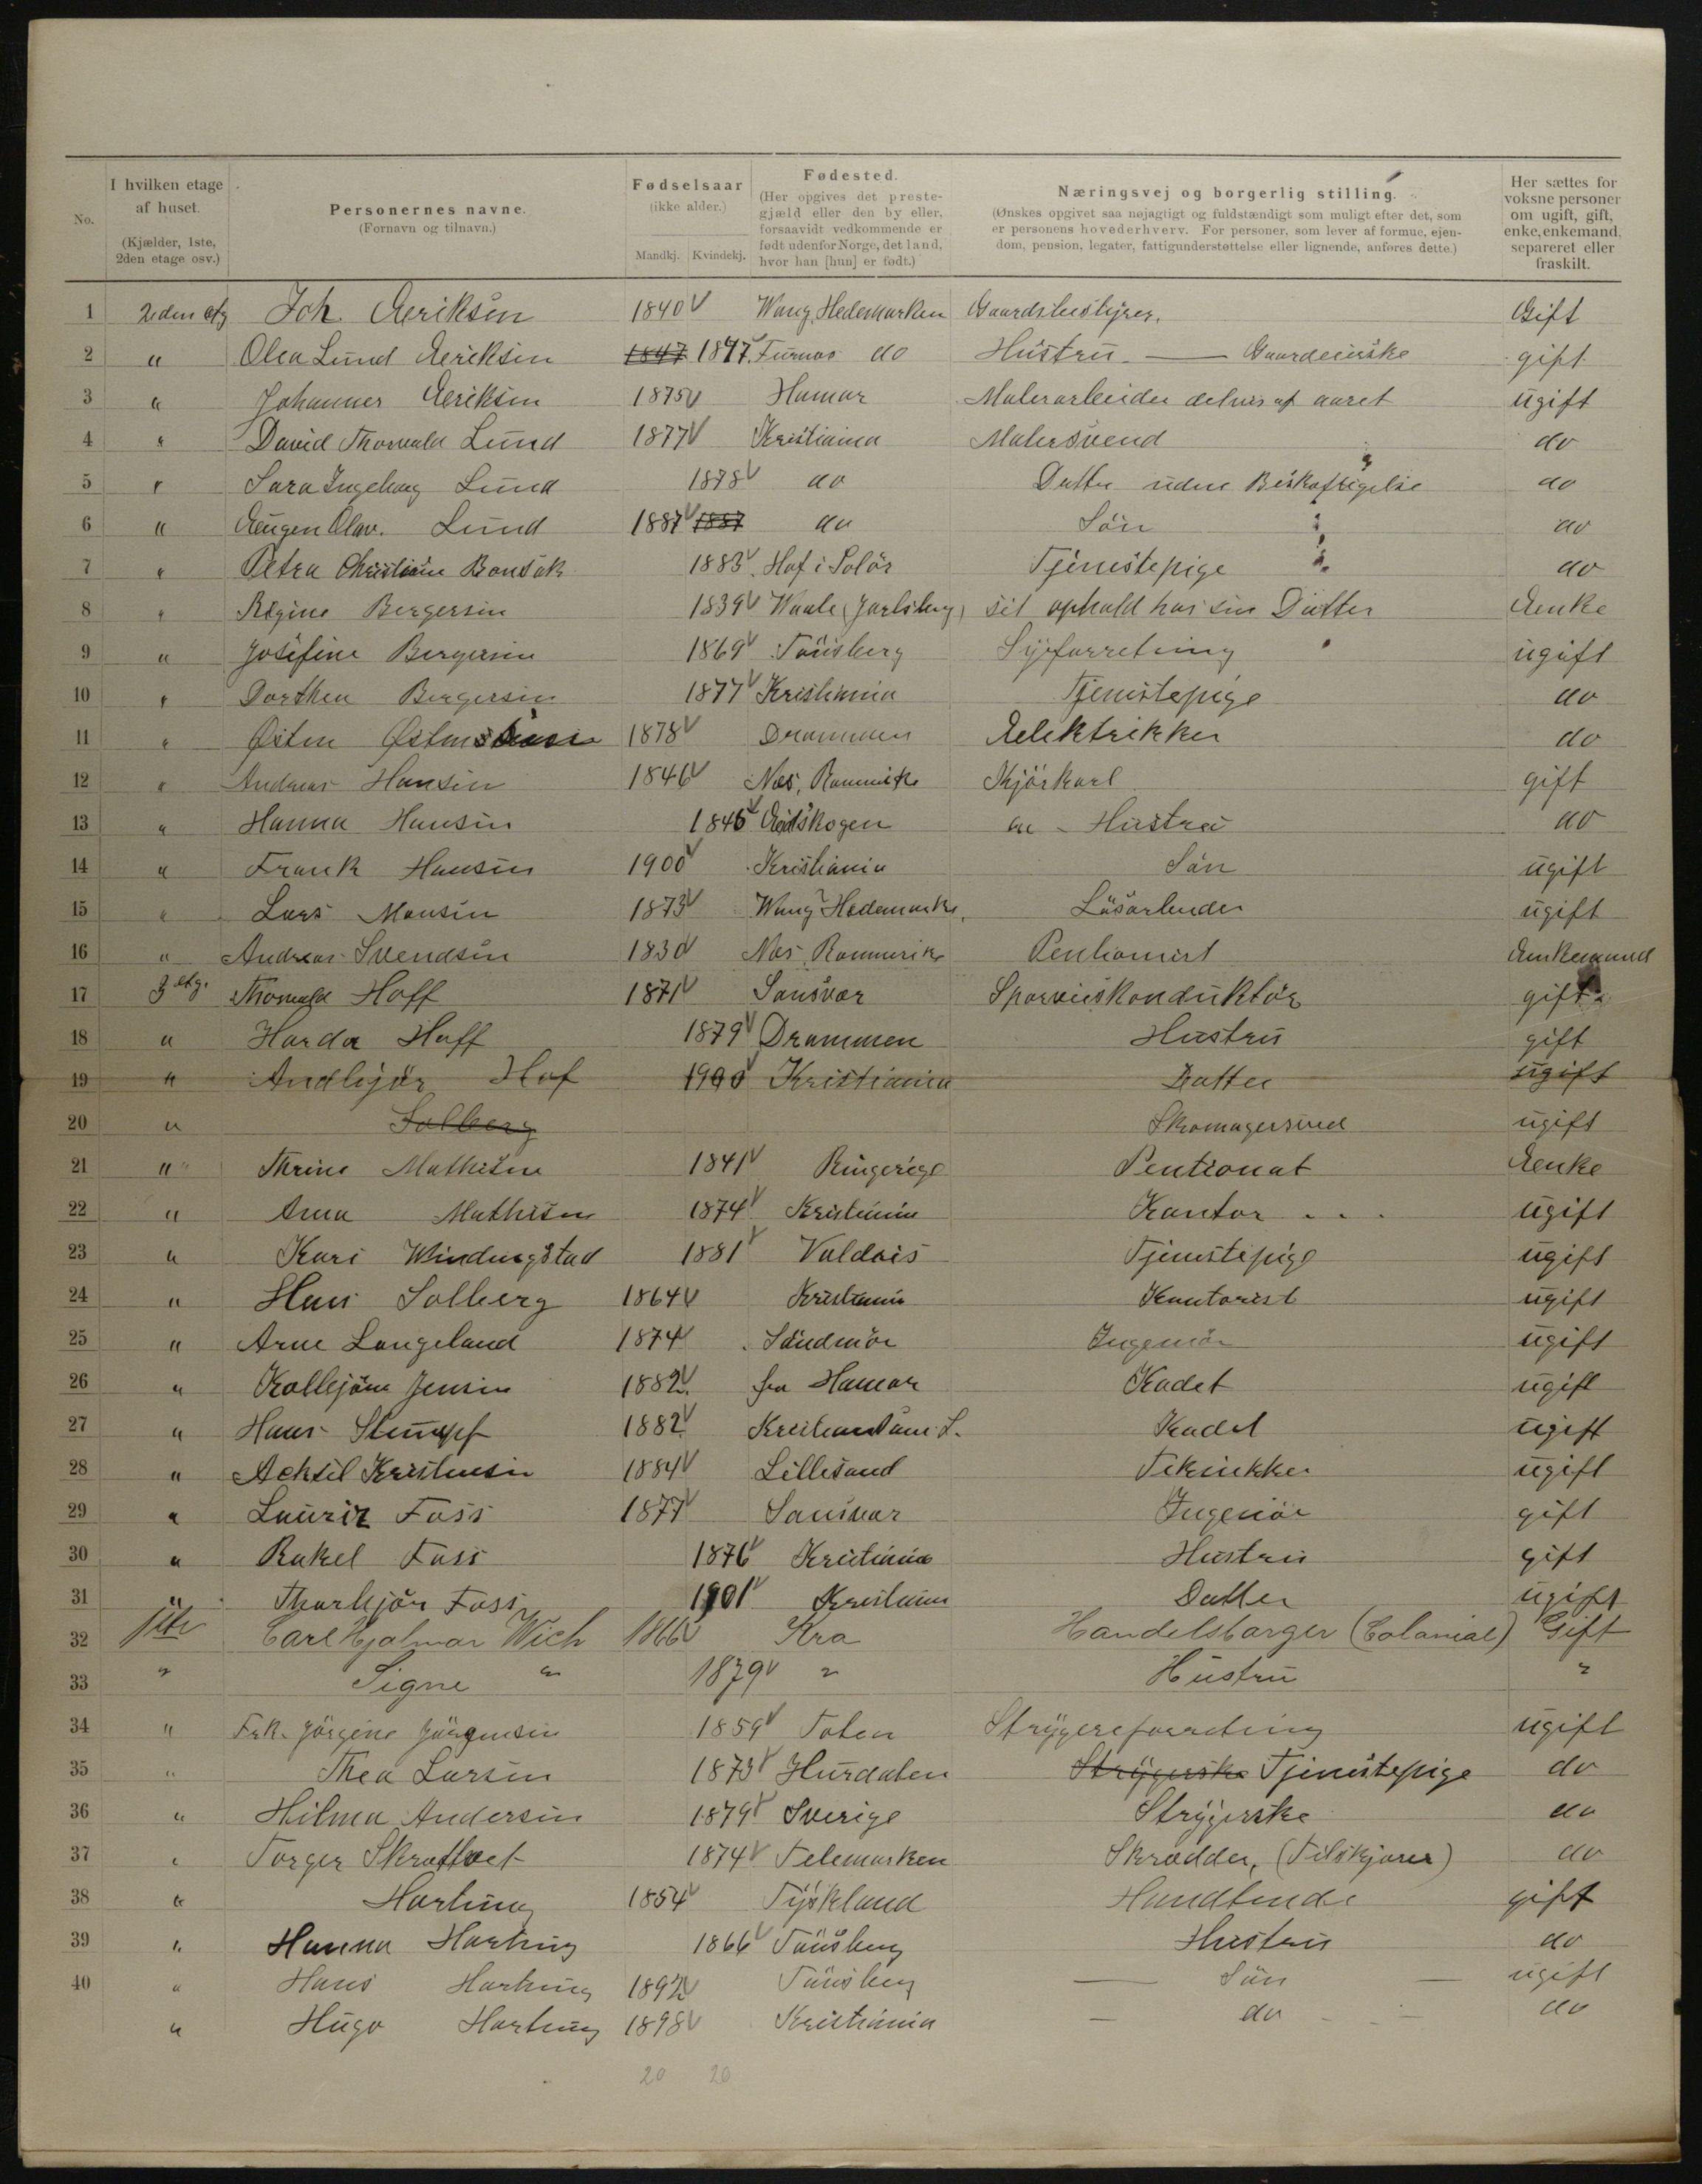 No. I hvilken etage af huset. (Kjælder, 1ste, 2den etage osv.) Personernes navne. (Fornavn og tilnavn.) Fødselsaar (ikke alder.) Mandkj. Kvindekj. Fødested. (Her opgives det prestegjæld eller den by eller, forsaavidt vedkommende er født udenfor Norge, det land, hvor han [hun] er født.) Næringsvej og borgerlig stilling. (Ønskes opgivet saa nøjagtigt og fuldstændigt som muligt efter det, som er personens hovederhverv. For personer, som lever af formue, ejendom, pension, legater, fattigunderstøttelse eller lignende, anføres dette.) Her sættes for voksne personer om ugift, gift, enke, enkemand, separeret eller fraskilt.
1 2den etg Joh. Aeriksen 1840 Wang, Hedemarken Gaardsbestyrer. Gift
2 " Olea Lund Aeriksen 1847 1847 Furnes do Hustru — gift
3 " Johannes Aeriksen 1875 Hamar Malerarbeider delvis af aaret ugift
4 " David Thorvald Lund 1877 Kristiania Malersvend do
5 " Sara Ingeborg Lund 1878 do Datter uden Beskæftigelse do
6 " Aeugen Olav. Lund 1887 1887 do Sön do
7 " Petra Christiane Bonsak 1883 Hof i Solör Tjenestepige do
8 " Regine Bergersen 1839 Waale (Jarlsberg) sit ophold hos sin Datter Aenke
9 " Josefine Bergersen 1869 Tönsberg Syforretning ugift
10 " Dorthea Bergersen 1877 Kristiania Tjenestepige do
11 " Østen 1878 Drammen Aelektrikker do
12 " Andreas Hansen 1846 Nes, Romerike Kjörkarl gift
13 " Hanna Hansen 1846 Aeidskogen Hustru do
14 " Frank Hansen 1900 Kristiania Sön ugift
15 " Lars Monsen 1873 Wang Hedemarke. Lösarbeider ugift
16 " Andreas Svendsen 1830 Nes Rommerike Pentionist Aenkemand
17 3 etg. Thorvald Hoff 1871 Sansvær Sporveiskonduktör gift
18 " Harda Hoff 1879 Drammen Hustru gift
19 " Andbjör Hof 1900 Kristiania Datter ugift
20 " Solberg Skomagersvend ugift
21 " Thrine Mathisen 1841 Ringerige Pentionat Aenke
22 " Anna Mathisen 1874 Kristiania Kontor . . . ugift
23 " Kari Windingstad 1881 Valdris Tjenestepige ugift
24 " Hans Solberg 1864 Kristiania Kontorist ugift
25 " Arne Langeland 1874 Söndmör Ingeniör ugift
26 " Kolbjörn Jensen 1882 fra Hamar Kadet ugift
27 " Hans Stumpf 1882 Kristiansund. Kadet ugift
28 " Acksel Kristensen 1884 Lillesand Teknikker ugift
29 " Lauriz Foss 1877 Sansvær Ingeniör gift
30 " Rakel Foss 1876 Kristiania Hustru gift
31 " Thorbjör Foss 1901 Kristiania Datter ugift
32 1ste Carl Hjalmar Wich 1866 Kra Handelsborger (Colonial) Gift
33 " Signe " 1879 " Hustru "
34 " Frk. Jörgine Jörgensen 1859 Toten Strygereforretning ugift
35 " Thea Larsen 1873 Hurdalen Strygerske Tjenestepige do
36 " Hilma Andersen 1879 Sverige Strygerske do
37 " Torger Skraftvet 1874 Telemarken Skrædder, (Tilskjærer) do
38 " Hartung 1854 Tyskland gift
39 " Hanna Hartung 1866 Tönsberg Hustru do
40 " Hans Hartung 1892 Tönsberg — Sön — ugift
" Hugo Hartung 1898 Kristiania — do — do
20 20